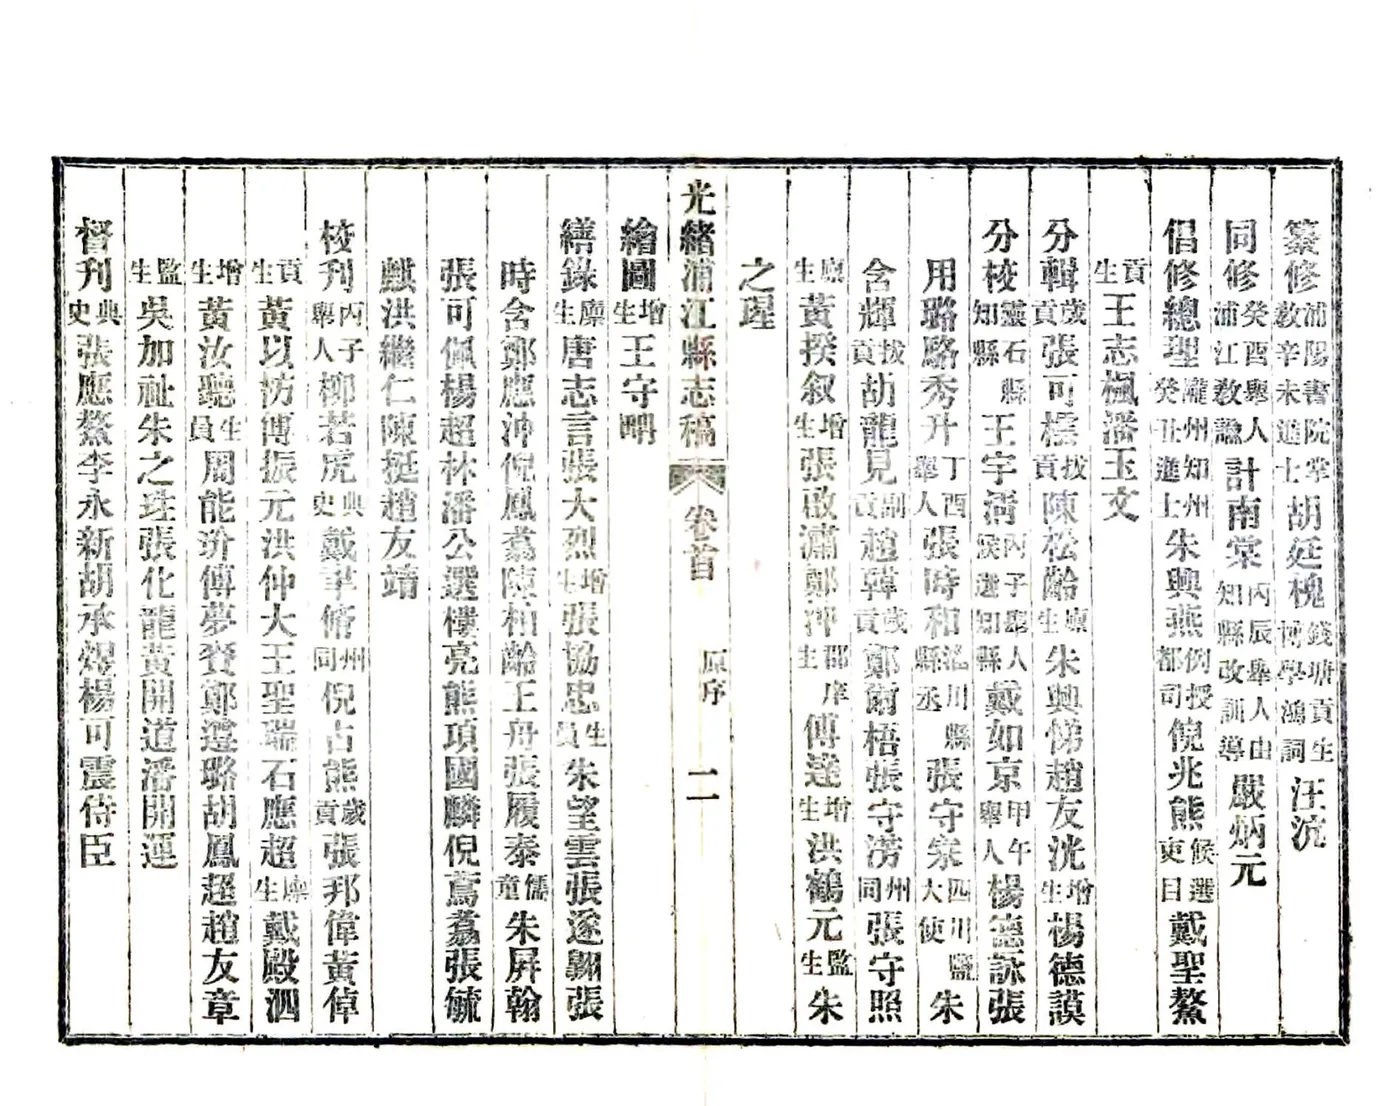 纂修浦陽書院掌教辛未進士胡廷槐錢塘貢生博學鴻詞汪沆
同修癸酉舉人浦江教諭計南棠丙辰舉人由知縣改訓導嚴炳元
倡修總理瀧州知州癸丑進士朱興燕例授都司倪兆熊候選吏目戴聖鰲
貢生王志楓潘玉文
分輯歲貢張可標拔貢陳松齡廩生朱興悌趙友洸增生楊德謨
分校靈石縣知縣王宇淸丙子舉人候選知縣戴如京甲午舉人楊德詠張
用璐駱秀升丁酉舉人張時和洺川縣縣丞張守宋四川鹽大使朱
含輝拔貢胡龍見副貢趙韓歲貢鄭爾梧張守滂州同張守照
廩生黃揆叙增生張啟瀟鄭沖郡庠生傅逵增生洪鶴元監生朱
之珽
光緒浦江縣志稿 卷首 原序 二
繪圖增生王守疄
繕錄廩生唐志言張大烈增生張協忠生員朱望雲張遂翽張
時含鄭應沖倪鳳翥陳柏齡王舟張履泰儒童朱屏翰
張可佩楊超林潘公選樓亮熊項國麟倪鶱翥張毓
麒洪繼仁陳挺趙友靖
校刊丙子舉人柳若虎典史戴芉脩州同倪占熊歲貢張邦偉黃倬
貢生黃以坊傅振元洪仲大王聖瑞石應超廩生戴殿泗
增生黃汝聽生員周能汾傅夢賚鄭遵璐胡鳳超趙友章
監生吳加祉朱之珪張化龍黃開道潘開運
督刊典史張應鰲李永新胡承煜楊可震侍臣